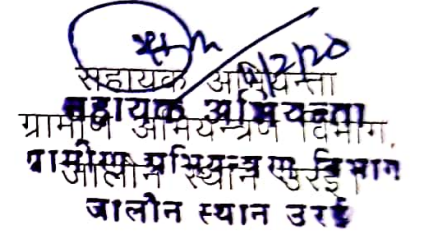 6/2/20
सहायक अभियन्ता
सहायक अभियन्ता
ग्रामीण अभियन्त्रण विभाग,
ग्रामीण अभियन्त्रण विभाग
जालौन स्थान उरई।
जालौन स्थान उरई